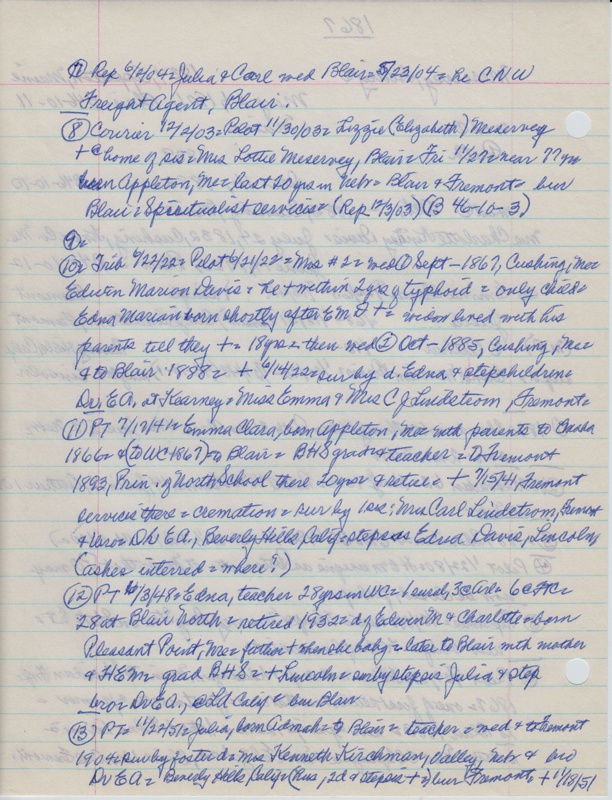 1867
⑦ Rep 6/2/04 = Julia & Carl wed Blair = 5/23/04 = he CNW
Freight Agent, Blair.
⑧ Courier 12/2/03 = Pilot 11/30/03 = Lizzie (Elizabeth) Meservey
+ @ home of sis = Mrs Lottie Meservey, Blair = Fri 11/27 = near 77 yrs
born Appleton, Me = last 20 yrs in Nebr = Blair & Fremont = bur
Blair = Spiritualist services = (Rep 12/3/03) (B 46-10-3)
⑨ =
⑩ = Trib 6/22/22 = Pilot 6/21/22 = Mrs #2 = wed ① Sept - 1867, Cushing, Me =
Edwin Marion Davis = he + within 2 yrs of typhoid = only child
Edna Marian born shortly after EMD + = widow lived with his
parents till they + = 18 yrs = then wed ② Oct - 1885, Cushing, Me =
& to Blair 1888 = + 6/14/22 = sur by d. Edna & stepchildren =
Dr. E.A. at Kearney = Miss Emma & Mrs C J Lindstrom, Fremont =
⑪ PT 7/17/41 = Emma Clara, born Appleton, Me = with parents to Omaha
1866 & (to WC 1867) to Blair = BHS grad & teacher = to Fremont
1893, Prin. of North School there 20 yrs & retired = + 7/15/41, Fremont
services there = cremation = sur by 1 sis; Mrs Carl Lindstrom, Fremont
& bro = Dr EA, Beverly Hills, Calif = stepsis Edna Davis, Lincoln,
(ashes interred = where?)
⑫ PT 6/3/48 = Edna, teacher 28 yrs in WC =
28 at Blair North = retired 1932 = d of Edwin M & Charlotte = born
Pleasant Point, Me = father + when she baby = later to Blair with mother
& HEM = grad BHS = + Lincoln = sur by stepsis Julia & step
bro = Dr EA, Calif = bur Blair
⑬ PT = 11/22/51 = Julia, born Omaha = to Blair = teacher = wed & to Fremont
1904 = sur by foster d = Mrs Kenneth Kirchman, Valley, Nebr & bro
Dr E A = Beverly Hills, Calif = (Hus, 2d & stepsis + =) bur Fremont = + 11/18/51